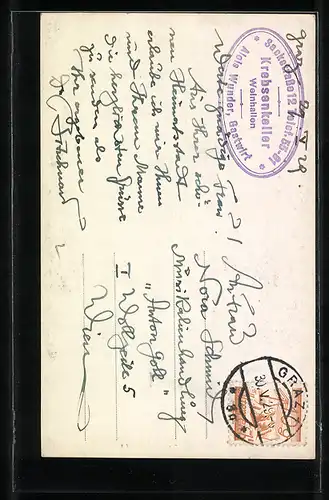 Graz 29. V. 29.
Sackstraße 12 Telef. 55-01
Krebsenkeller
Weinhallen
Alois Wunder, Gastwirt
Aus Ihrer
nen Heimatstadt
erlaube ich mir Ihnen
und Ihrem Manne
die herzlichsten Grüsse
zu senden als
Ihr ergebener
An Frau
Nora Schmid
Musikalienhandlung
"Anton Goll"
I Wollzeile 5
Wien
GRAZ
30 V 29